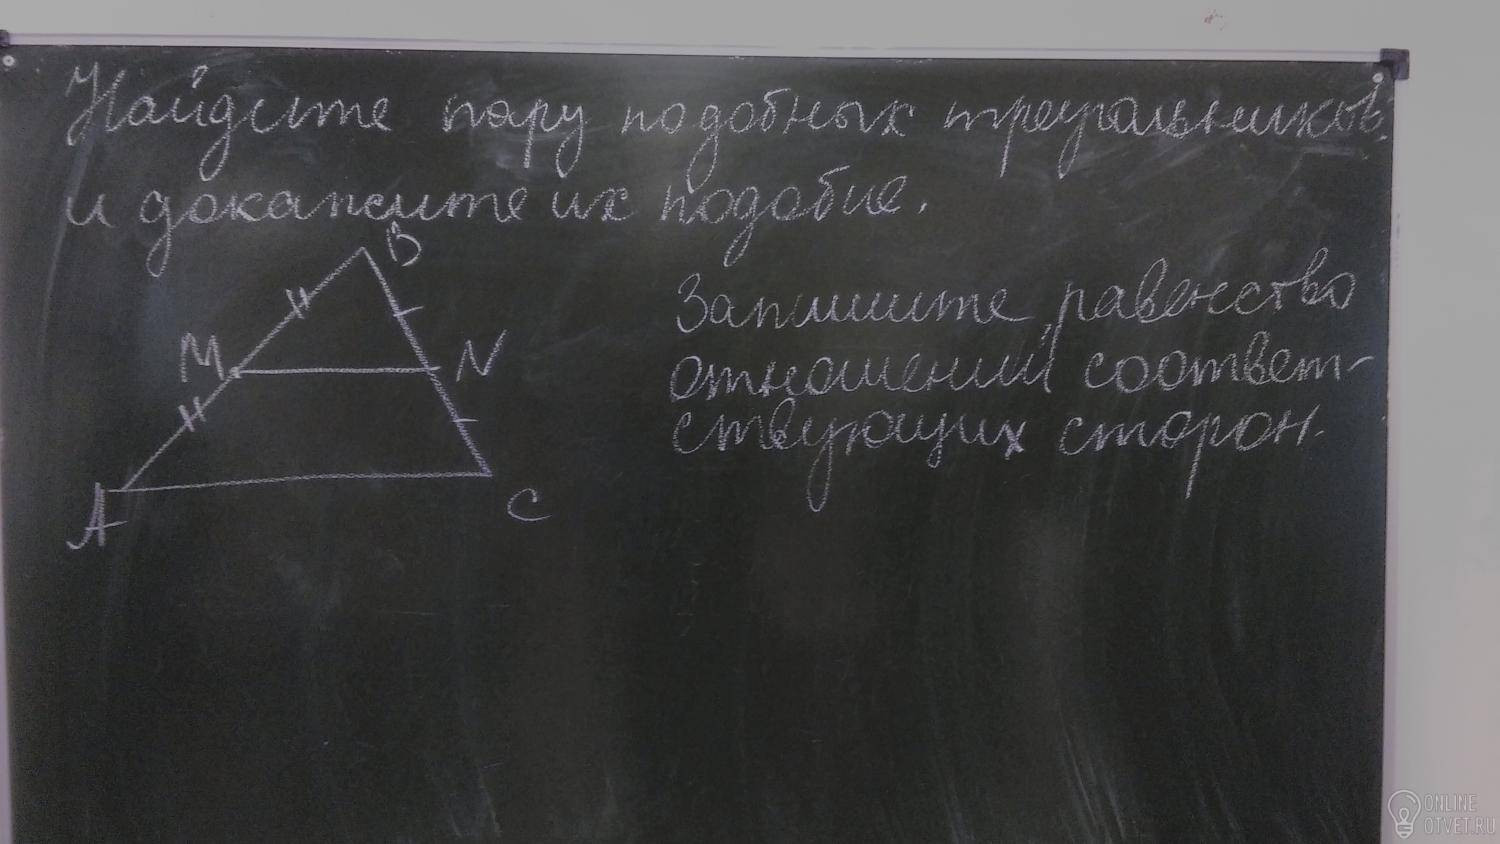 Найдите пару подобных треугольников
и докажите их подобие.
B
Запишите равенство
M
N
отношений соответ-
ствующих сторон.
A
C
ONLINE
OTVET.RU